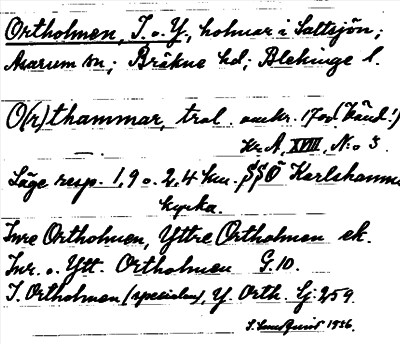 Ortholmen, I. o. Y., holmar i Saltsjön;
Asarum sn; Bräkne hd; Blekinge l.
O(r)thammar, trol. omkr. 1700 (Känd!)
Kr. A. XVIII, N:o 3.
Läge resp. 1,9 o. 2,4 km. SSÖ Karlshamns
kyrka.
Inre Ortholmen, Yttre Ortholmen ek.
Inr. o. Ytt. Ortholmen G. 10.
I. Ortholmen (specialen), Y. Orth. Sj. 259.
1926.